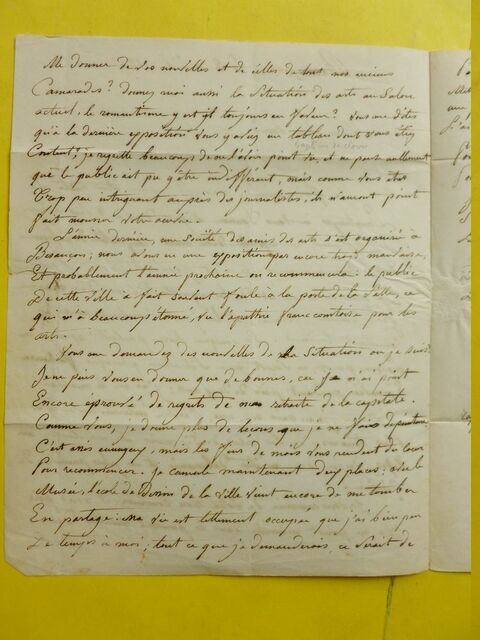 Me donner de vos nouvelles et de celles de tout nos anciens
Camarades? donnez moi aussi la Situation des arts au Salon
actuel, le romantisme y est il toujours en faveur? Vous me dites
qu'à la dernière exposition vous y aviez un tableau dont vous étiez
Content; je regrette beaucoup de ne l'avoir point vu, et ne pense nullement
que le public ait pu y être indifférent, mais comme vous êtes
trop peu intriguant auprès des journalistes, ils n'auront point
fait mousser votre œuvre.
L'année dernière, une Société des amis des arts s'est organisée à
Besançon; nous avons eu une exposition pas encore trop mauvaise,
Et probablement l'année prochaine on recommencera. le public
De cette ville a fait Souvent foule à la porte de la Salle, ce
qui m'a beaucoup étonné, vu l'apathie franc comtoise pour les
arts.
Vous me demandez des nouvelles de la Situation où je suis?
Je ne puis vous en donner que de bonnes, car je n'ai point
Encore éprouvé de regrets de ma retraite de la capitale.
Comme vous, je donne plus de leçons que je ne fais de peinture
C'est assez ennuyeux, mais les fins de mois vous rendent du cœur
Pour recommencer. Je cumule maintenant des places; avec le
Musée, l'école de Dessin de la ville vient encore de me tomber
En partage: ma vie est tellement occupée que j'ai bien peu
De temps à moi; tout ce que je demanderais, ce serait de